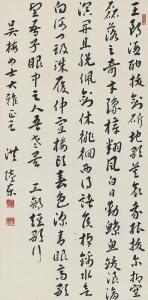 王郎酒酣拔劍斫地歌莫哀我能拔爾抑塞
磊落之奇才豫樟翻風白日動鯨魚跋浪滄
溟開且脫佩劍休徘徊西得諸侯棹錦水欲
向何門趿珠履仲宣樓頭春色深青眼高歌
望吾子眼中之人吾老矣 王郎短歌行
吳梅 大雅正之 洪陸東